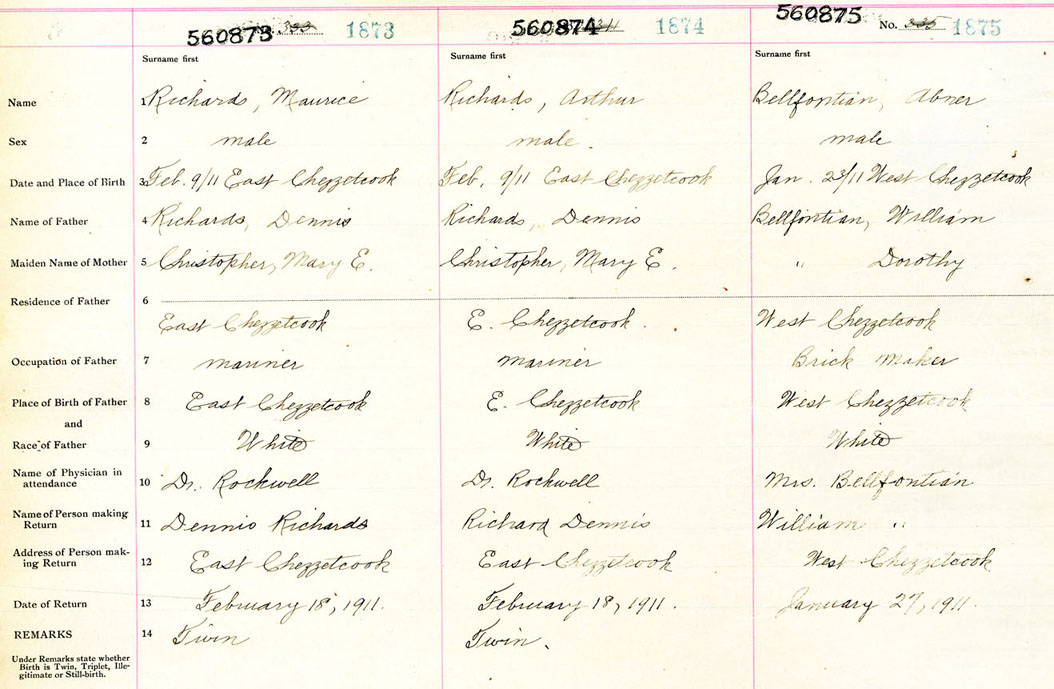 560873 333 1873 560874 334 1874 560875 No. 335 1875
Surname first Surname first Surname first
Name 1 Richards, Maurice Richards, Arthur Bellfontian, Abner
Sex 2 male male. male
Date and Place of Birth 3 Feb. 9/11 East Chezzetcook Feb. 9/11 East Chezzetcook Jan. 23/11 West Chezzetcook
Name of Father 4 Richards, Dennis Richards, Dennis Bellfontian, William
Maiden Name of Mother 5 Christopher, Mary E. Christopher, Mary E. " Dorothy
Residence of Father 6
East Chezzetcook E. Chezzetcook. West Chezzetcook
Occupation of Father 7 mariner mariner Brick Maker
Place of Birth of Father 8 East Chezzetcook E. Chezzetcook West Chezzetcook
and
Race of Father 9 White White White
Name of Physician in
attendance 10 Dr. Rockwell Dr. Rockwell Mrs. Bellfontian
Name of Person making
Return 11 Dennis Richards Richard Dennis William "
Address of Person mak-
ing Return 12 East Chezzetcook East Chezzetcook West Chezzetcook
Date of Return 13 February 18, 1911. February 18, 1911. January 27, 1911.
REMARKS 14 Twin Twin.
Under Remarks state whether
Birth is Twin, Triplet, Ille-
gitimate or Still-birth.